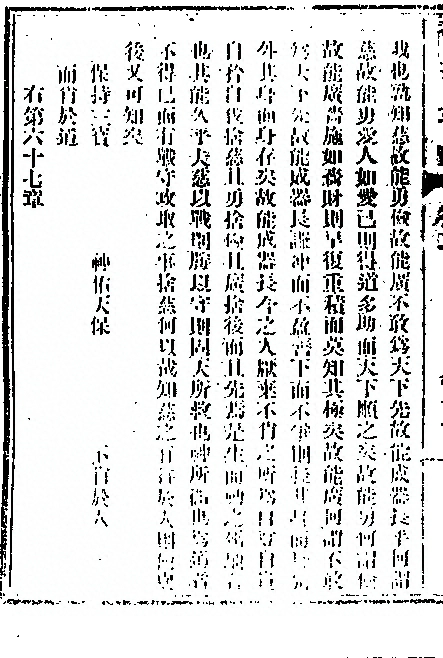 我也孰知慈故能勇儉故能廣不敢爲天下先故能成器長乎何謂
慈故能勇愛人如愛己則得道多助而天下順之矣故能勇何謂儉
故能廣嗇施如嗇財則早復重積而莫知其極矣故能廣何謂不敢
爲天下先故能成器長謙沖而不盈善下而不爭則後其身而身先
外其身而身存矣故能成器長今之人厭棄不肖之所爲自
自矜自伐捨慈且勇捨儉且廣捨後而且先爲是生而
也其能久乎夫慈以戰則勝以守則固天所救也神所也
不得已而有戰守攻取之事捨慈何以哉知慈之有於人則
後又可知矣
保持三寶　神佑天保　不肖於人
而肖於道
右第六十七章